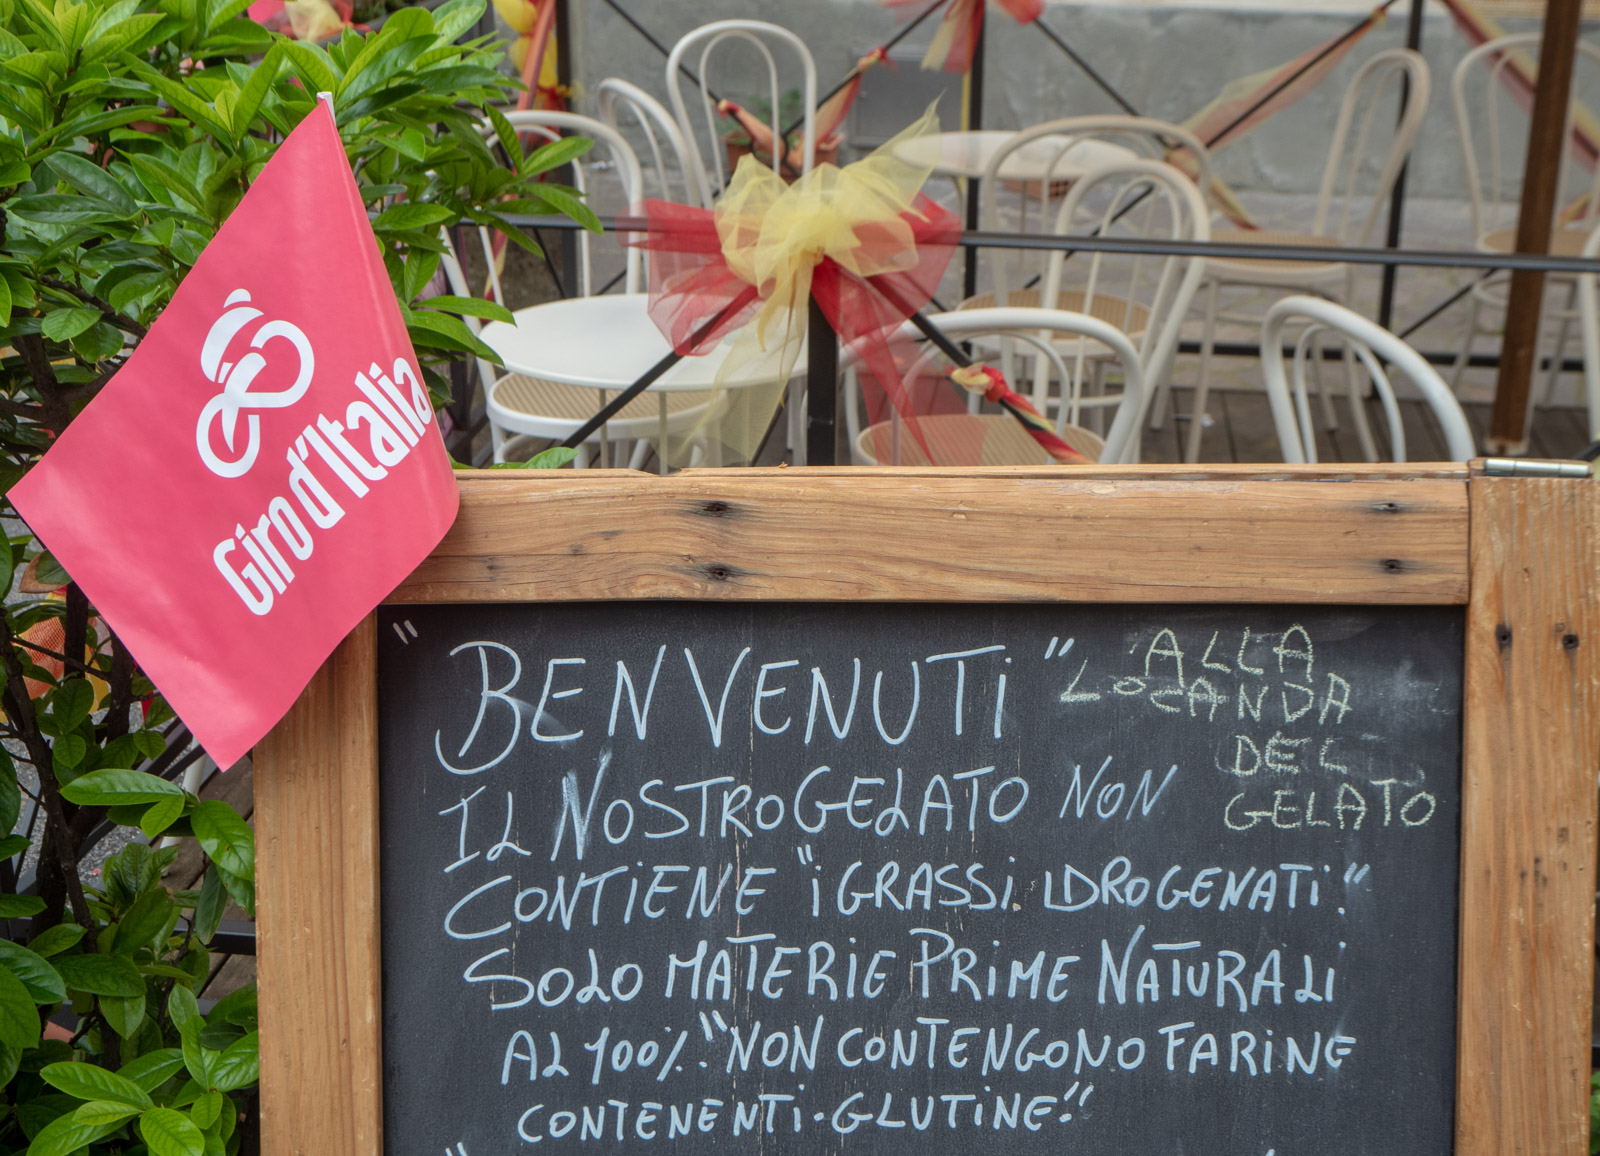 Giro d'Italia
"BENVENUTI" ALLA
LOCANDA
DEL
GELATO
IL NOSTRO GELATO NON
CONTIENE "i GRASSI. IDROGENATI."
SOLO MATERIE PRIME NATURALI
AL 100%."NON CONTENGONO FARINE
CONTENENTI-GLUTINE!"